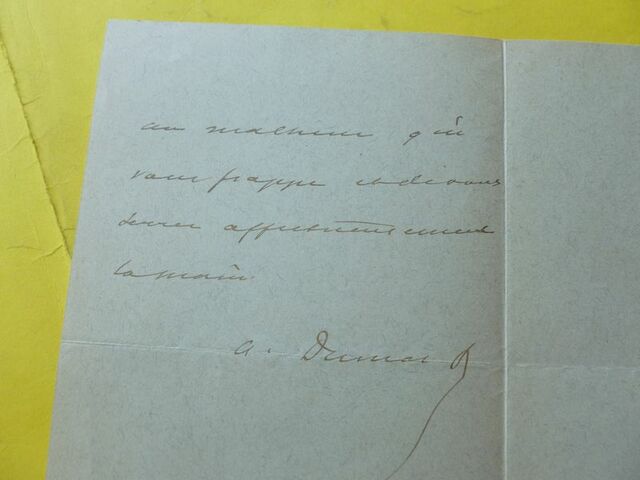 au malheur qui
vous frappe et de vous
serrer affectueusement
la main.
A. Dumas f